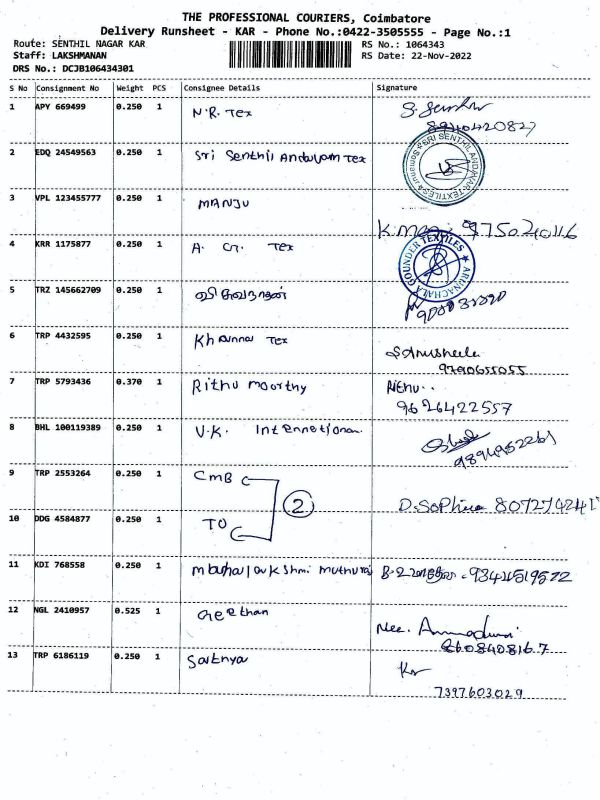 THE PROFESSIONAL COURIERS, Coimbatore
Delivery Runsheet - KAR - Phone No.:0422-3505555 - Page No.:1
Route: SENTHIL NAGAR KAR RS No.: 1064343
Staff: LAKSHMANAN RS Date: 22-Nov-2022
DRS No.: DCJB106434301
S No Consignment No Weight PCS Consignee Details Signature
1 APY 669499 0.250 1 N.R. Tex
2 EDQ 24549563 0.250 1 Sri Senthil Andavam Tex
SRI SENTHILANDAVAR TEXTILES
3 VPL 123455777 0.250 1 MANJU
4 KRR 1175877 0.250 1 A. Tex
ARUNACHALA GOUNDER TEXTILES
5 TRZ 145662709 0.250 1 விசுவநாதன்
6 TRP 4432595 0.250 1 Khanna Tex
9790655055
7 TRP 5793436 0.370 1 Rithu moorthy Rithu..
9626422557
8 BHL 100119389 0.250 1 V.K. Internetional
9894952261
9 TRP 2553264 0.250 1 CMB
2
D. Sophiya
10 DDG 4584877 0.250 1 TO
11 KDI 768558 0.250 1 muthuraj
12 NGL 2410957 0.525 1 Geethan
8608408167
13 TRP 6186119 0.250 1 Sathya
7397603029